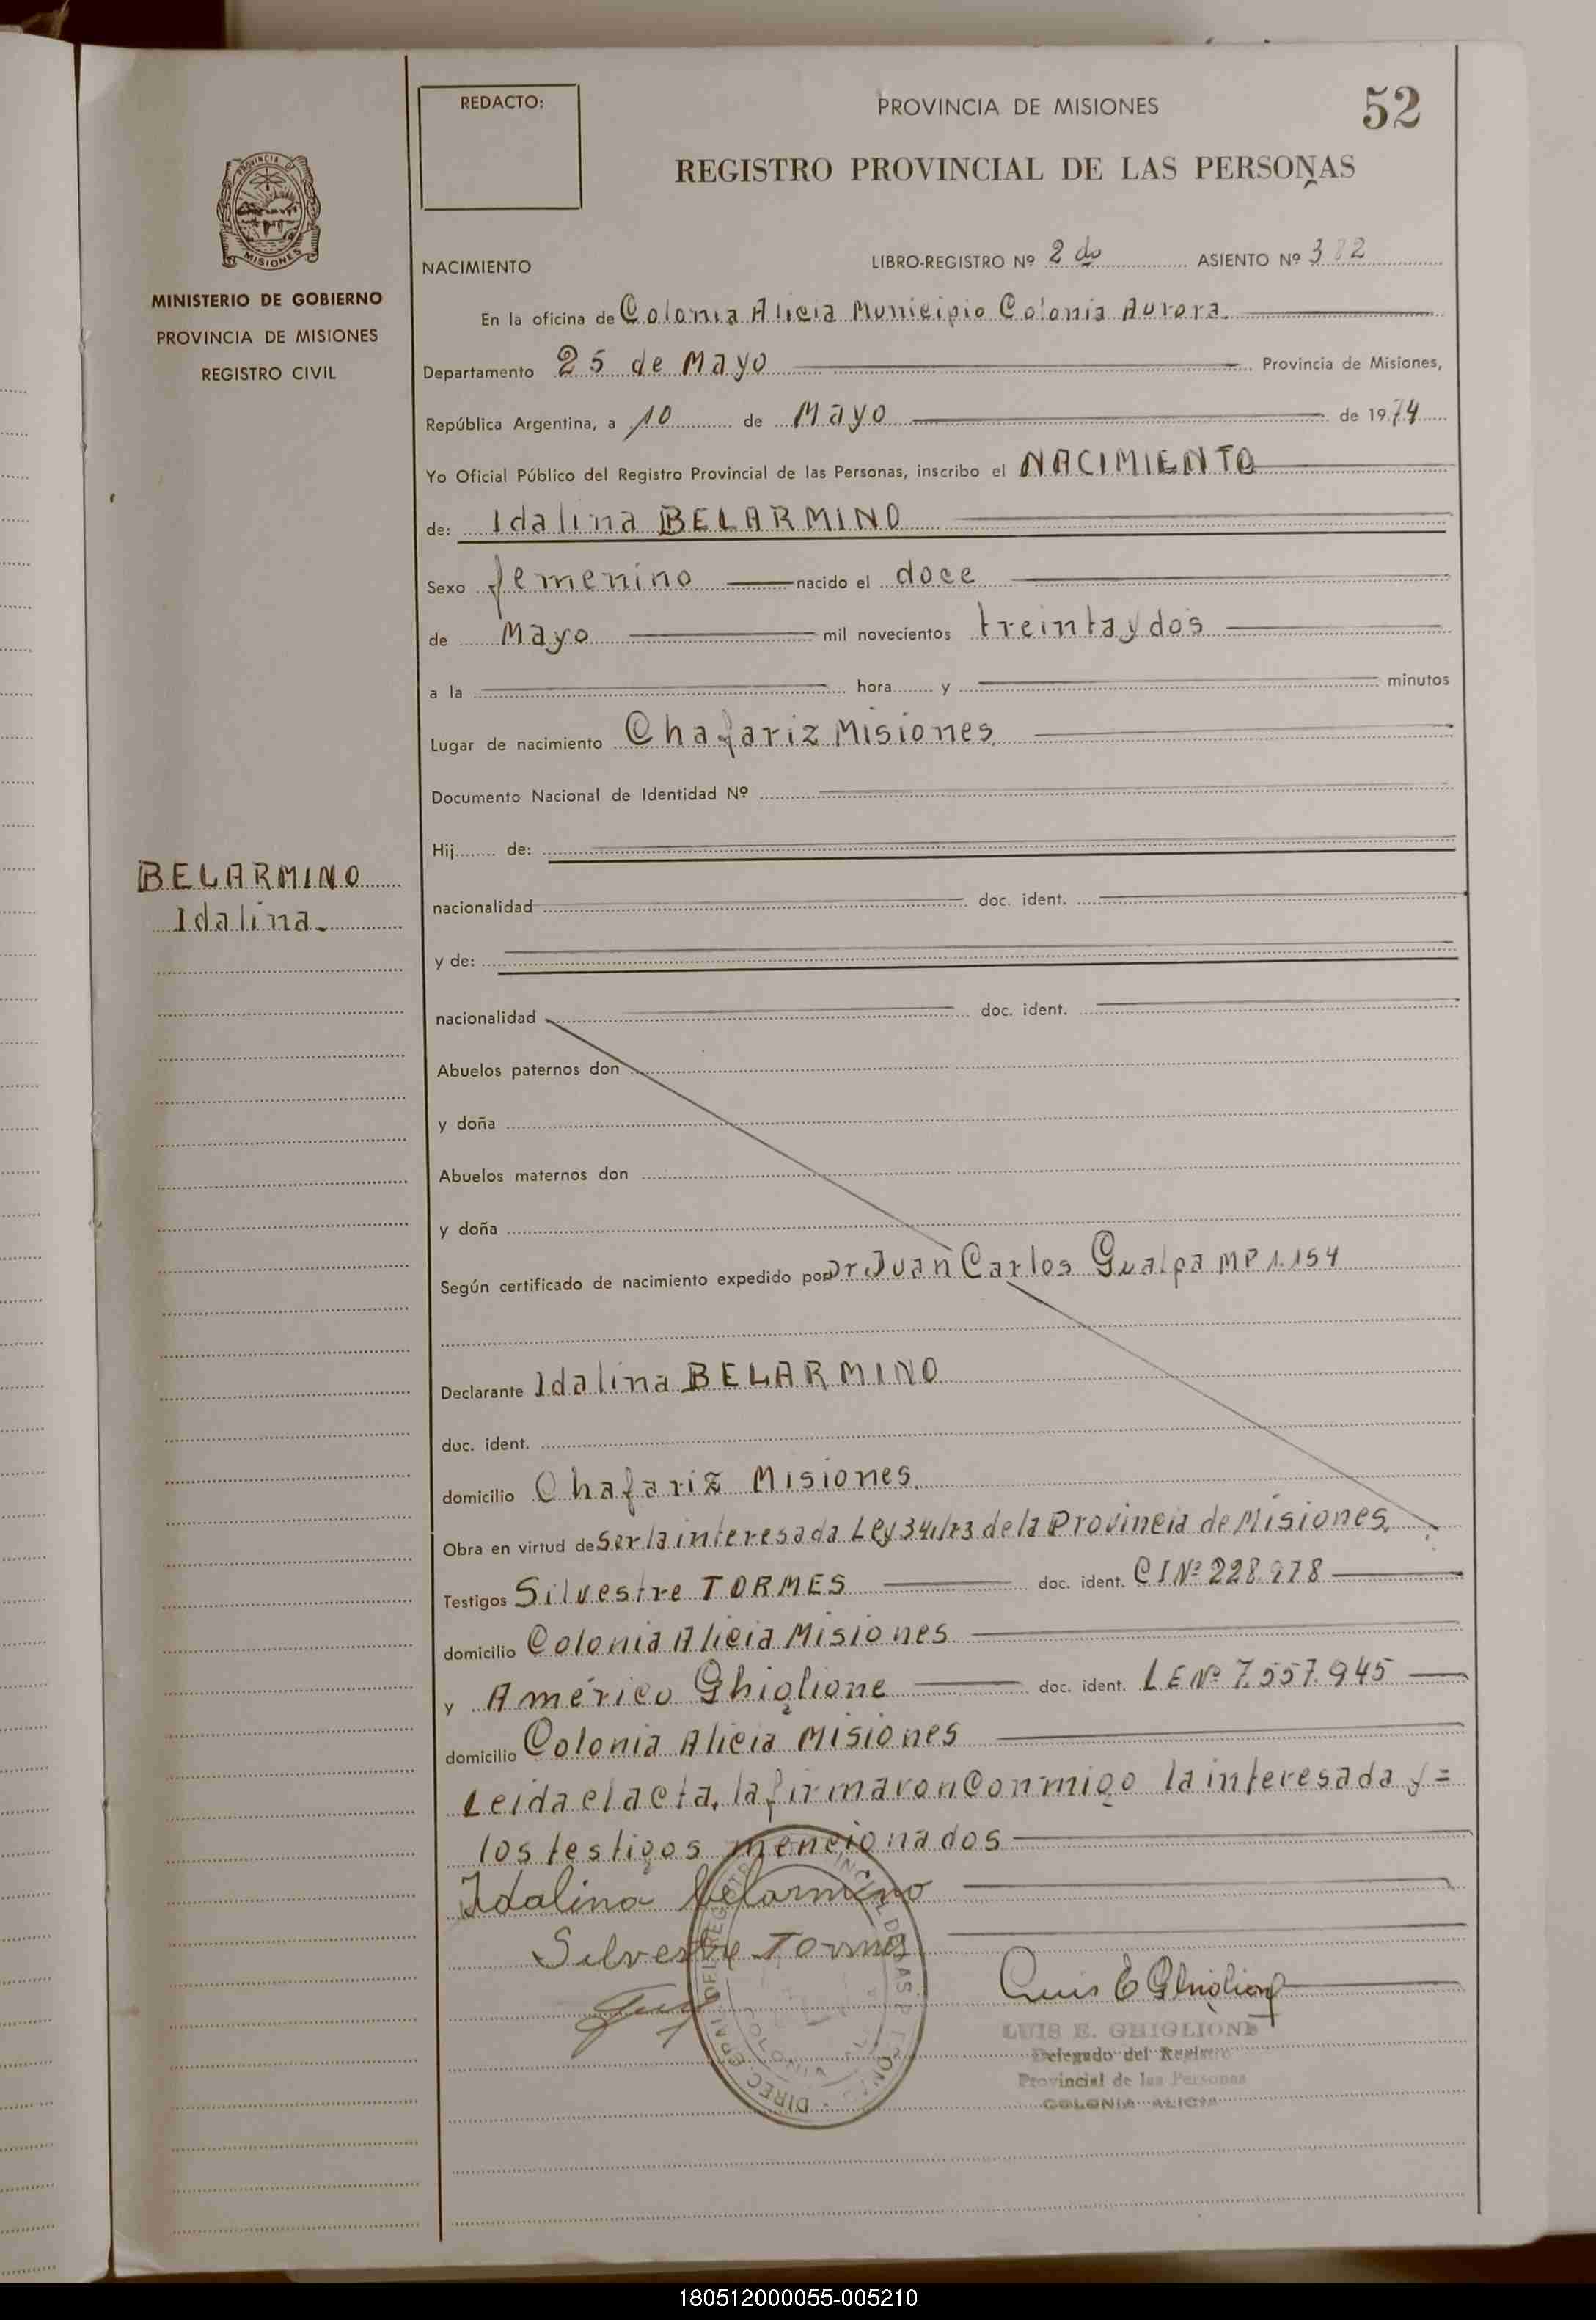 REDACTO:
PROVINCIA DE MISIONES
52
REGISTRO PROVINCIAL DE LAS PERSONAS
PROVINCIA DE
MISIONES
MINISTERIO DE GOBIERNO
PROVINCIA DE MISIONES
REGISTRO CIVIL
BELARMINO
Idalina.
NACIMIENTO LIBRO-REGISTRO Nº 2do ASIENTO Nº 382
En la oficina de Colonia Alicia Municipio Colonia Aurora.
Departamento 25 de Mayo Provincia de Misiones,
República Argentina, a 10 de Mayo de 1974
Yo Oficial Público del Registro Provincial de las Personas, inscribo el NACIMIENTO
de: Idalina BELARMINO
Sexo femenino nacido el doce
de Mayo mil novecientos treinta y dos
a la hora y minutos
Lugar de nacimiento Chafariz Misiones
Documento Nacional de Identidad Nº
Hij de:
nacionalidad doc. ident.
y de:
nacionalidad doc. ident.
Abuelos paternos don
y doña
Abuelos maternos don
y doña
Según certificado de nacimiento expedido por Dr Juan Carlos Gualpa MP 1.154
Declarante Idalina BELARMINO
doc. ident.
domicilio Chafariz Misiones.
Obra en virtud de Ser la interesada Ley 341/73 de la Provincia de Misiones.
Testigos Silvestre TORMES doc. ident. CI Nº 228.978
domicilio Colonia Alicia Misiones
y Américo Ghiglione doc. ident. LE Nº 7.557.945
domicilio Colonia Alicia Misiones
Leida el acta, la firmaron Conmigo la interesada y =
los testigos mencionados
Idalina Belarmino
Silvestre Tormes
Luis E Ghiglione
LUIS E. GHIGLIONE
Delegado del Registro
Provincial de las Personas
COLONIA ALICIA
180512000055-005210